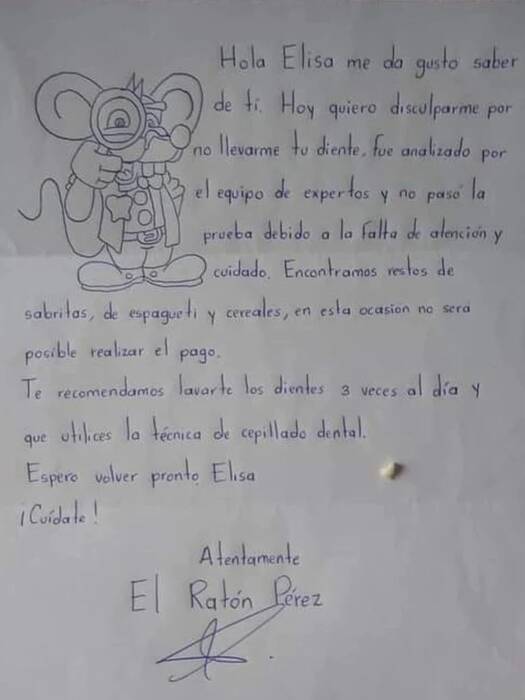 Hola Elisa me da gusto saber
de ti. Hoy quiero disculparme por
no llevarme tu diente. fue analizado por
el equipo de expertos y no pasó la
prueba debido a la falta de atención y
cuidado. Encontramos restos de
sabritas, de espagueti y cereales, en esta ocasion no será
posible realizar el pago.
Te recomendamos lavarte los dientes 3 veces al día y
que utilices la técnica de cepillado dental.
Espero volver pronto Elisa
¡Cuídate!
Atentamente
El Ratón Pérez